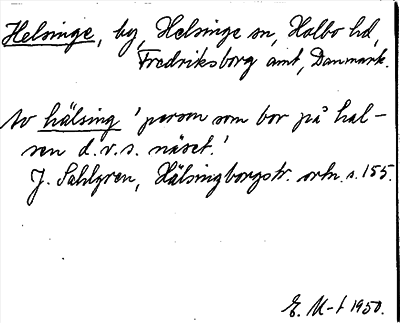 Helsinge, by, Helsinge sn, Holbo hd,
Fredriksborg amt, Danmark.
Av hälsing 'person som bor på hal-
sen d.v.s. näset.'
J. Sahlgren, Hälsingborgstr. ortn. s. 155.
E. M-t 1950.